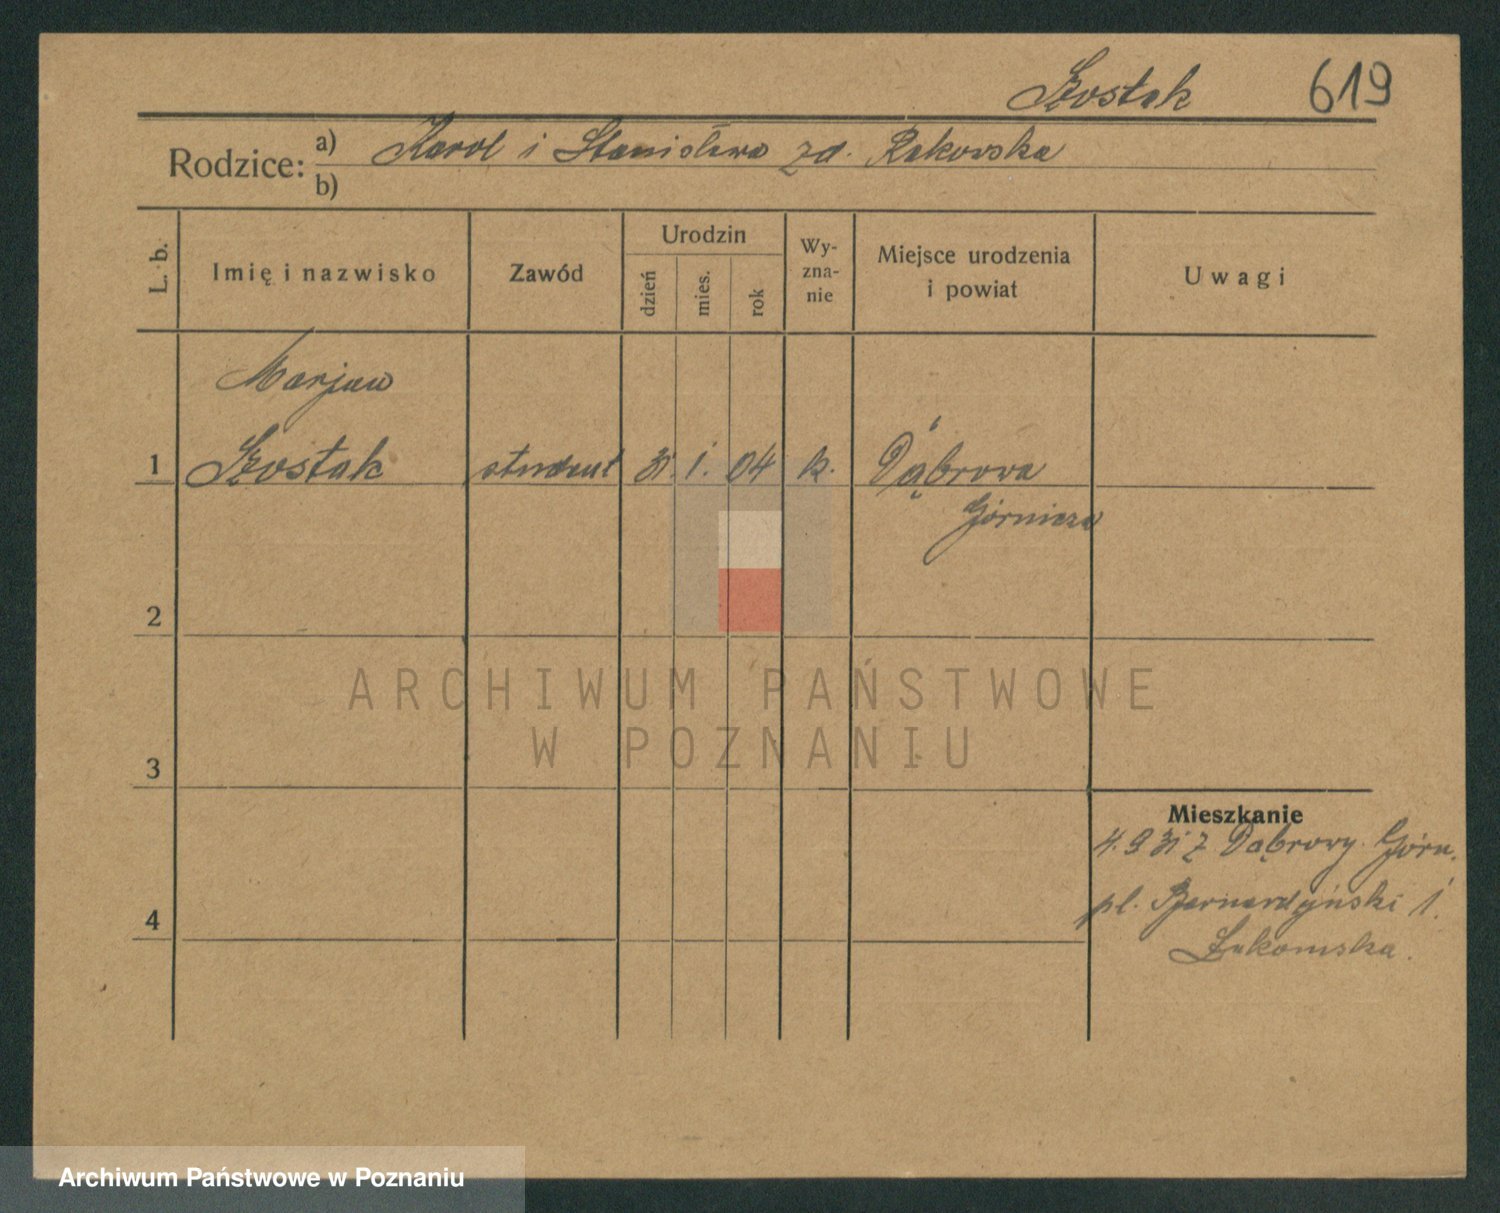 Szostak 619
Rodzice: a) Karol i Stanisława zd. Rakowska
b)
L. b.
Imię i nazwisko
Zawód
Urodzin
dzień
mies.
rok
Wy-
zna-
nie
Miejsce urodzenia
i powiat
Uwagi
Marjan
1 Szostak student 31. 1. 04 k. Dąbrowa
Górnicza
2
ARCHIWUM PAŃSTWOWE
W POZNANIU
3
Mieszkanie
4. 9 31 z Dąbrowy Górn.
pl. Bernardyński 1.
4
Łakomska.
Archiwum Państwowe w Poznaniu